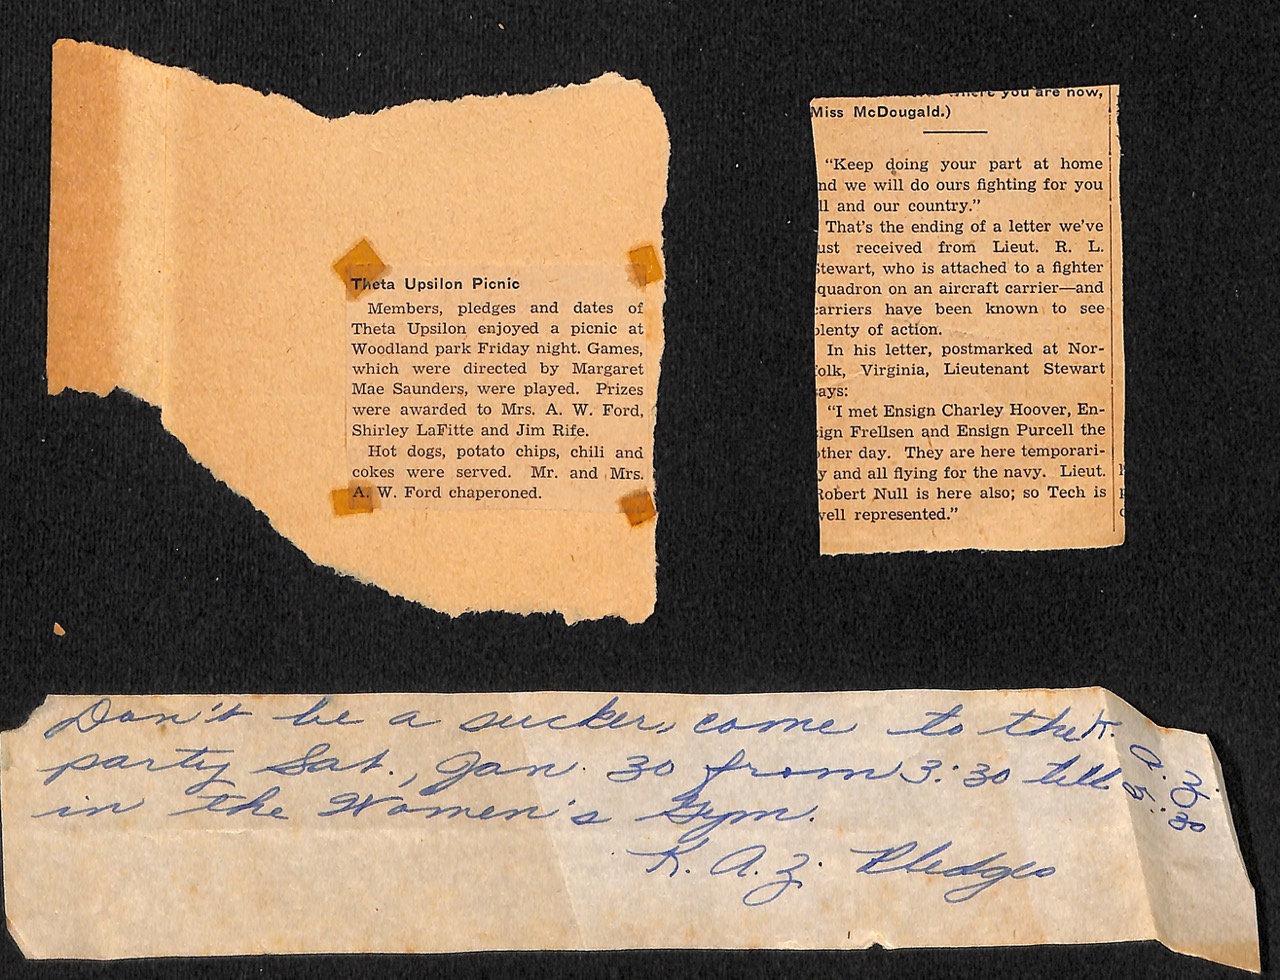 Theta Upsilon Picnic
Members, pledges and dates of
Theta Upsilon enjoyed a picnic at
Woodland park Friday night. Games,
which were directed by Margaret
Mae Saunders, were played. Prizes
were awarded to Mrs. A. W. Ford,
Shirley LaFitte and Jim Rife.
Hot dogs, potato chips, chili and
cokes were served. Mr. and Mrs.
A. W. Ford chaperoned.
you are now,
Miss McDougald.)
“Keep doing your part at home
nd we will do ours fighting for you
ll and our country.”
That’s the ending of a letter we’ve
ust received from Lieut. R. L.
Stewart, who is attached to a fighter
quadron on an aircraft carrier—and
carriers have been known to see
plenty of action.
In his letter, postmarked at Nor-
folk, Virginia, Lieutenant Stewart
says:
“I met Ensign Charley Hoover, En-
sign Frellsen and Ensign Purcell the
other day. They are here temporari-
y and all flying for the navy. Lieut.
Robert Null is here also; so Tech is
well represented.”
Don't be a sucker, come to the K. A. Z.
party Sat., Jan. 30 from 3:30 till 5:30
in the Women's Gym.
K. A. Z. Pledges